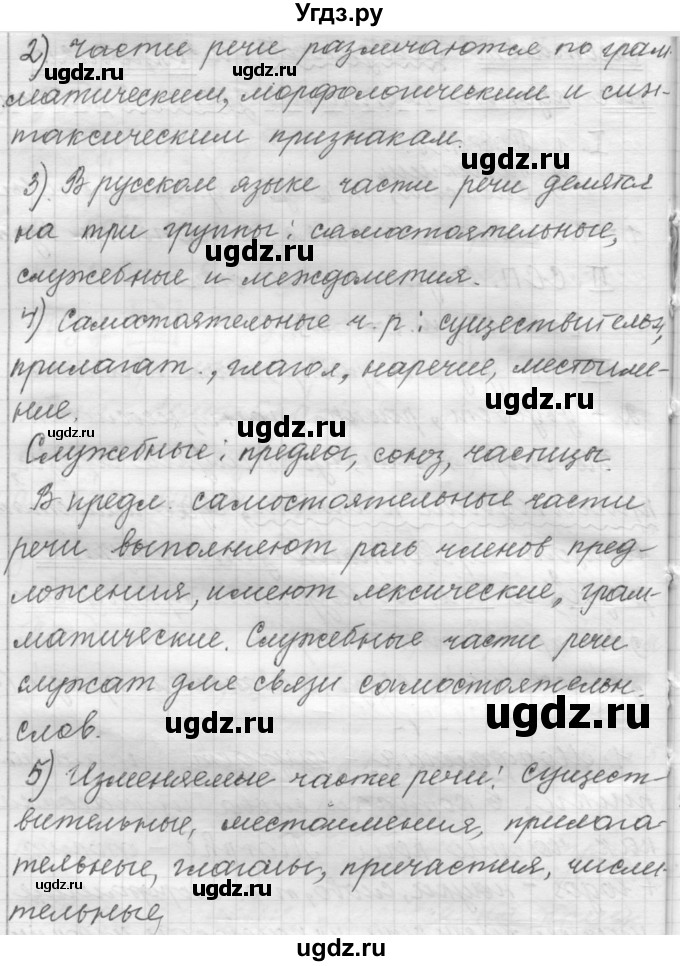 Угдз.ру
2) Части речи различаются по грам-
матическим, морфологическим и син-
таксическим признакам.
3) В русском языке части речи делятся
на три группы: самостоятельные,
служебные и междометия.
4) Самостоятельные ч.р: существительн,
прилагат., глагол, наречие, местоиме-
ние.
Служебные: предлог, союз, частицы.
В предл. самостоятельные части
речи выполняют роль членов пред-
ложения, имеют лексические, грам-
матические. Служебные части речи
служат для связи самостоятельн.
слов.
5) Изменяемые части речи: сущест-
вительные, местоимения, прилага-
тельные, глаголы, причастия, числи-
тельные,
ugdz.ru
ugdz.ru
ugdz.ru
ugdz.ru
ugdz.ru
ugdz.ru
ugdz.ru
ugdz.ru
ugdz.ru
ugdz.ru
ugdz.ru
ugdz.ru
ugdz.ru